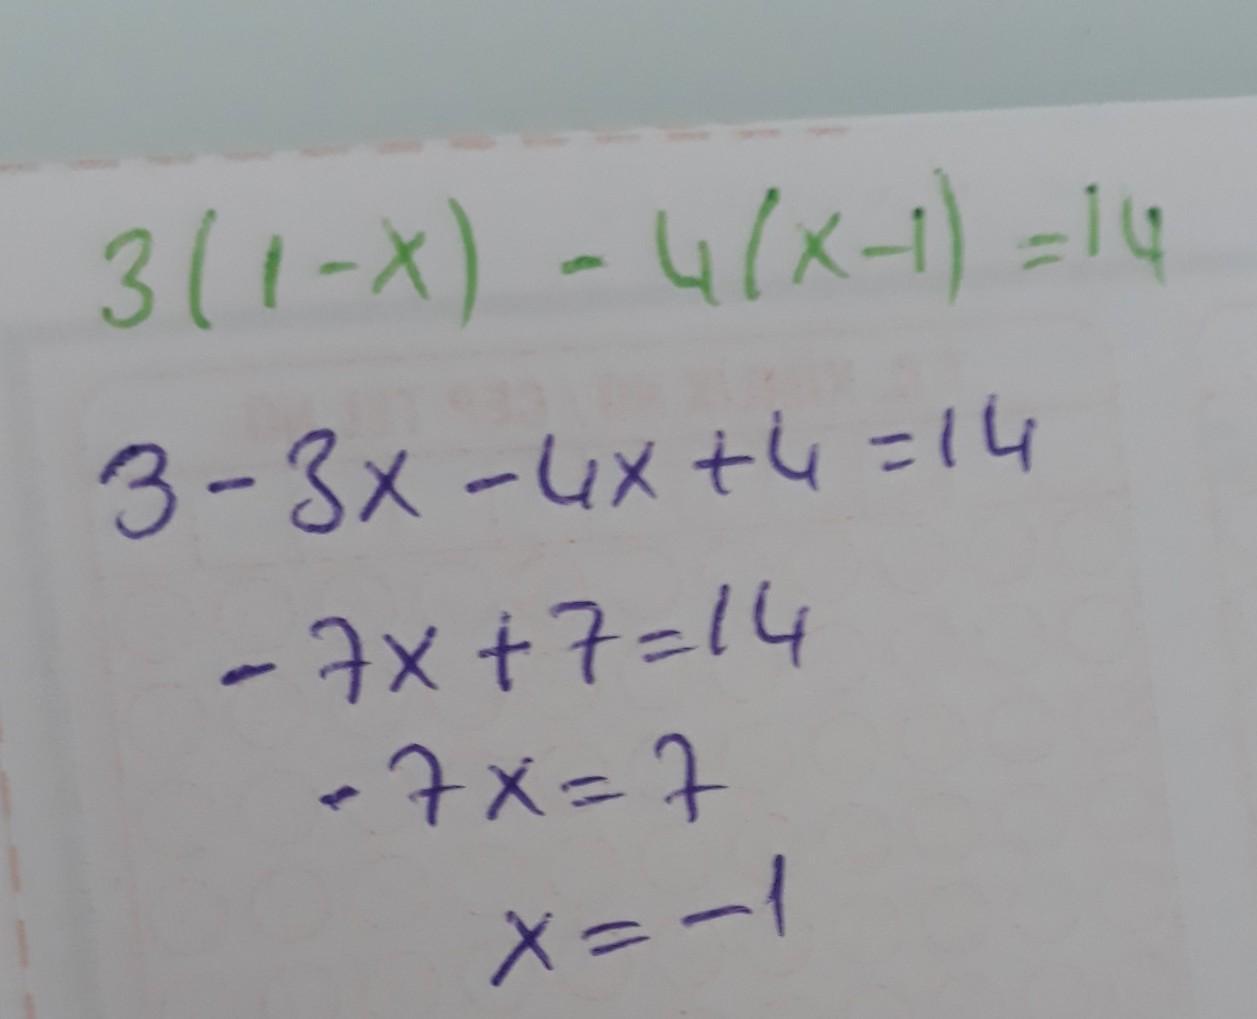 3(1-x) - 4(x-1) = 14
3 - 3x - 4x + 4 = 14
- 7x + 7 = 14
- 7x = 7
x = -1